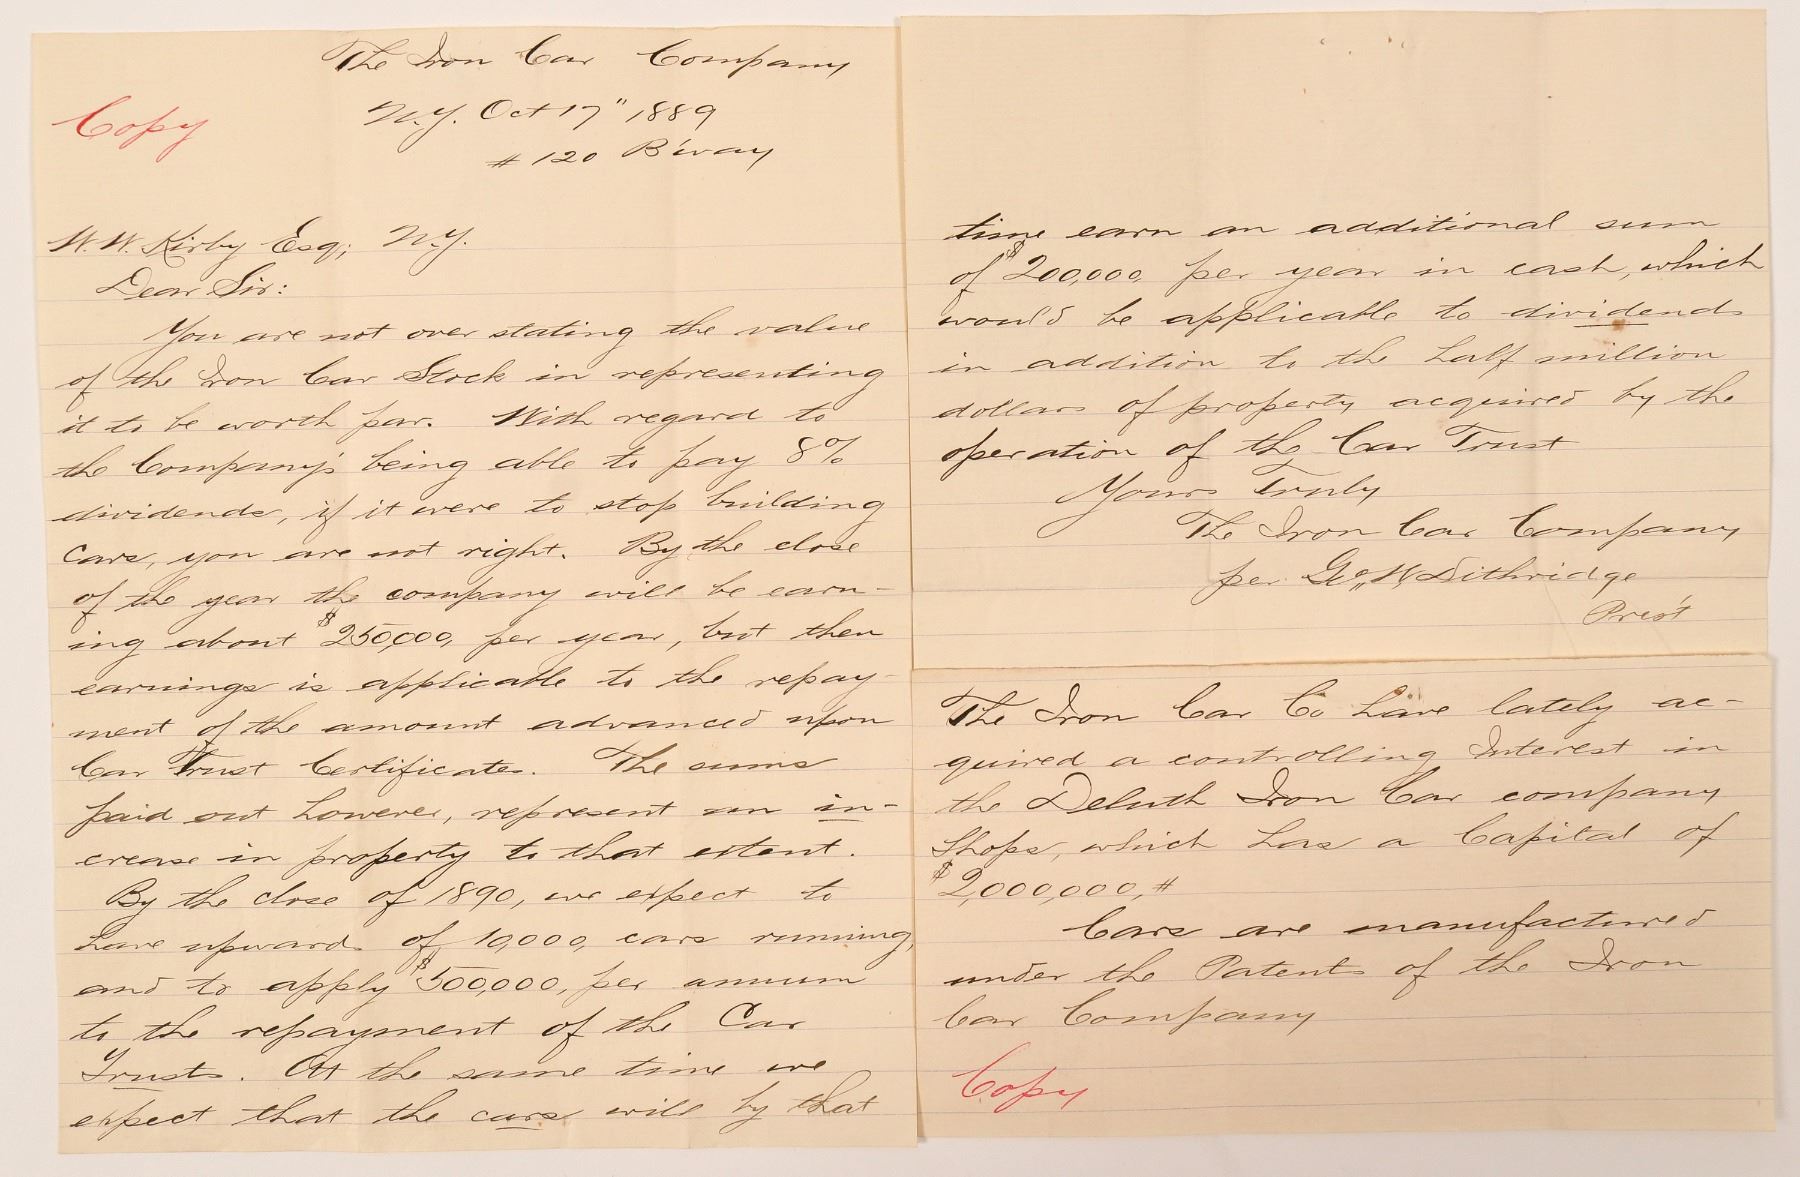 The Iron Car Company
Copy
N.Y. Oct 17" 1889
# 120 B'way
W. W. Kirby Esq; N.Y.
Dear Sir:
You are not over stating the value
of the Iron Car Stock in representing
it to be worth par. With regard to
the Company's being able to pay 8%
dividends, if it were to stop building
cars, you are not right. By the close
of the year the company will be earn-
ing about $250,000, per year, but then
earnings is applicable to the repay-
ment of the amount advanced upon
Car Trust Certificates. The sums
paid out however, represent an in-
crease in property to that extent.
By the close of 1890, we expect to
have upwards of 10,000, cars running,
and to apply $500,000, per annum
to the repayment of the Car
Trusts. At the same time we
expect that the cars will by that
time earn an additional sum
of $200,000, per year in cash, which
would be applicable to dividends
in addition to the half million
dollars of property acquired by the
operation of the Car Trust
Yours Truly
The Iron Car Company
per Geo, W Dithridge
Pres't
The Iron Car Co have lately ac-
quired a controlling Interest in
the Deluth Iron Car company
Shops, which has a Capital of
$2,000,000, #
Cars are manufactured
under the Patents of the Iron
Car Company
Copy